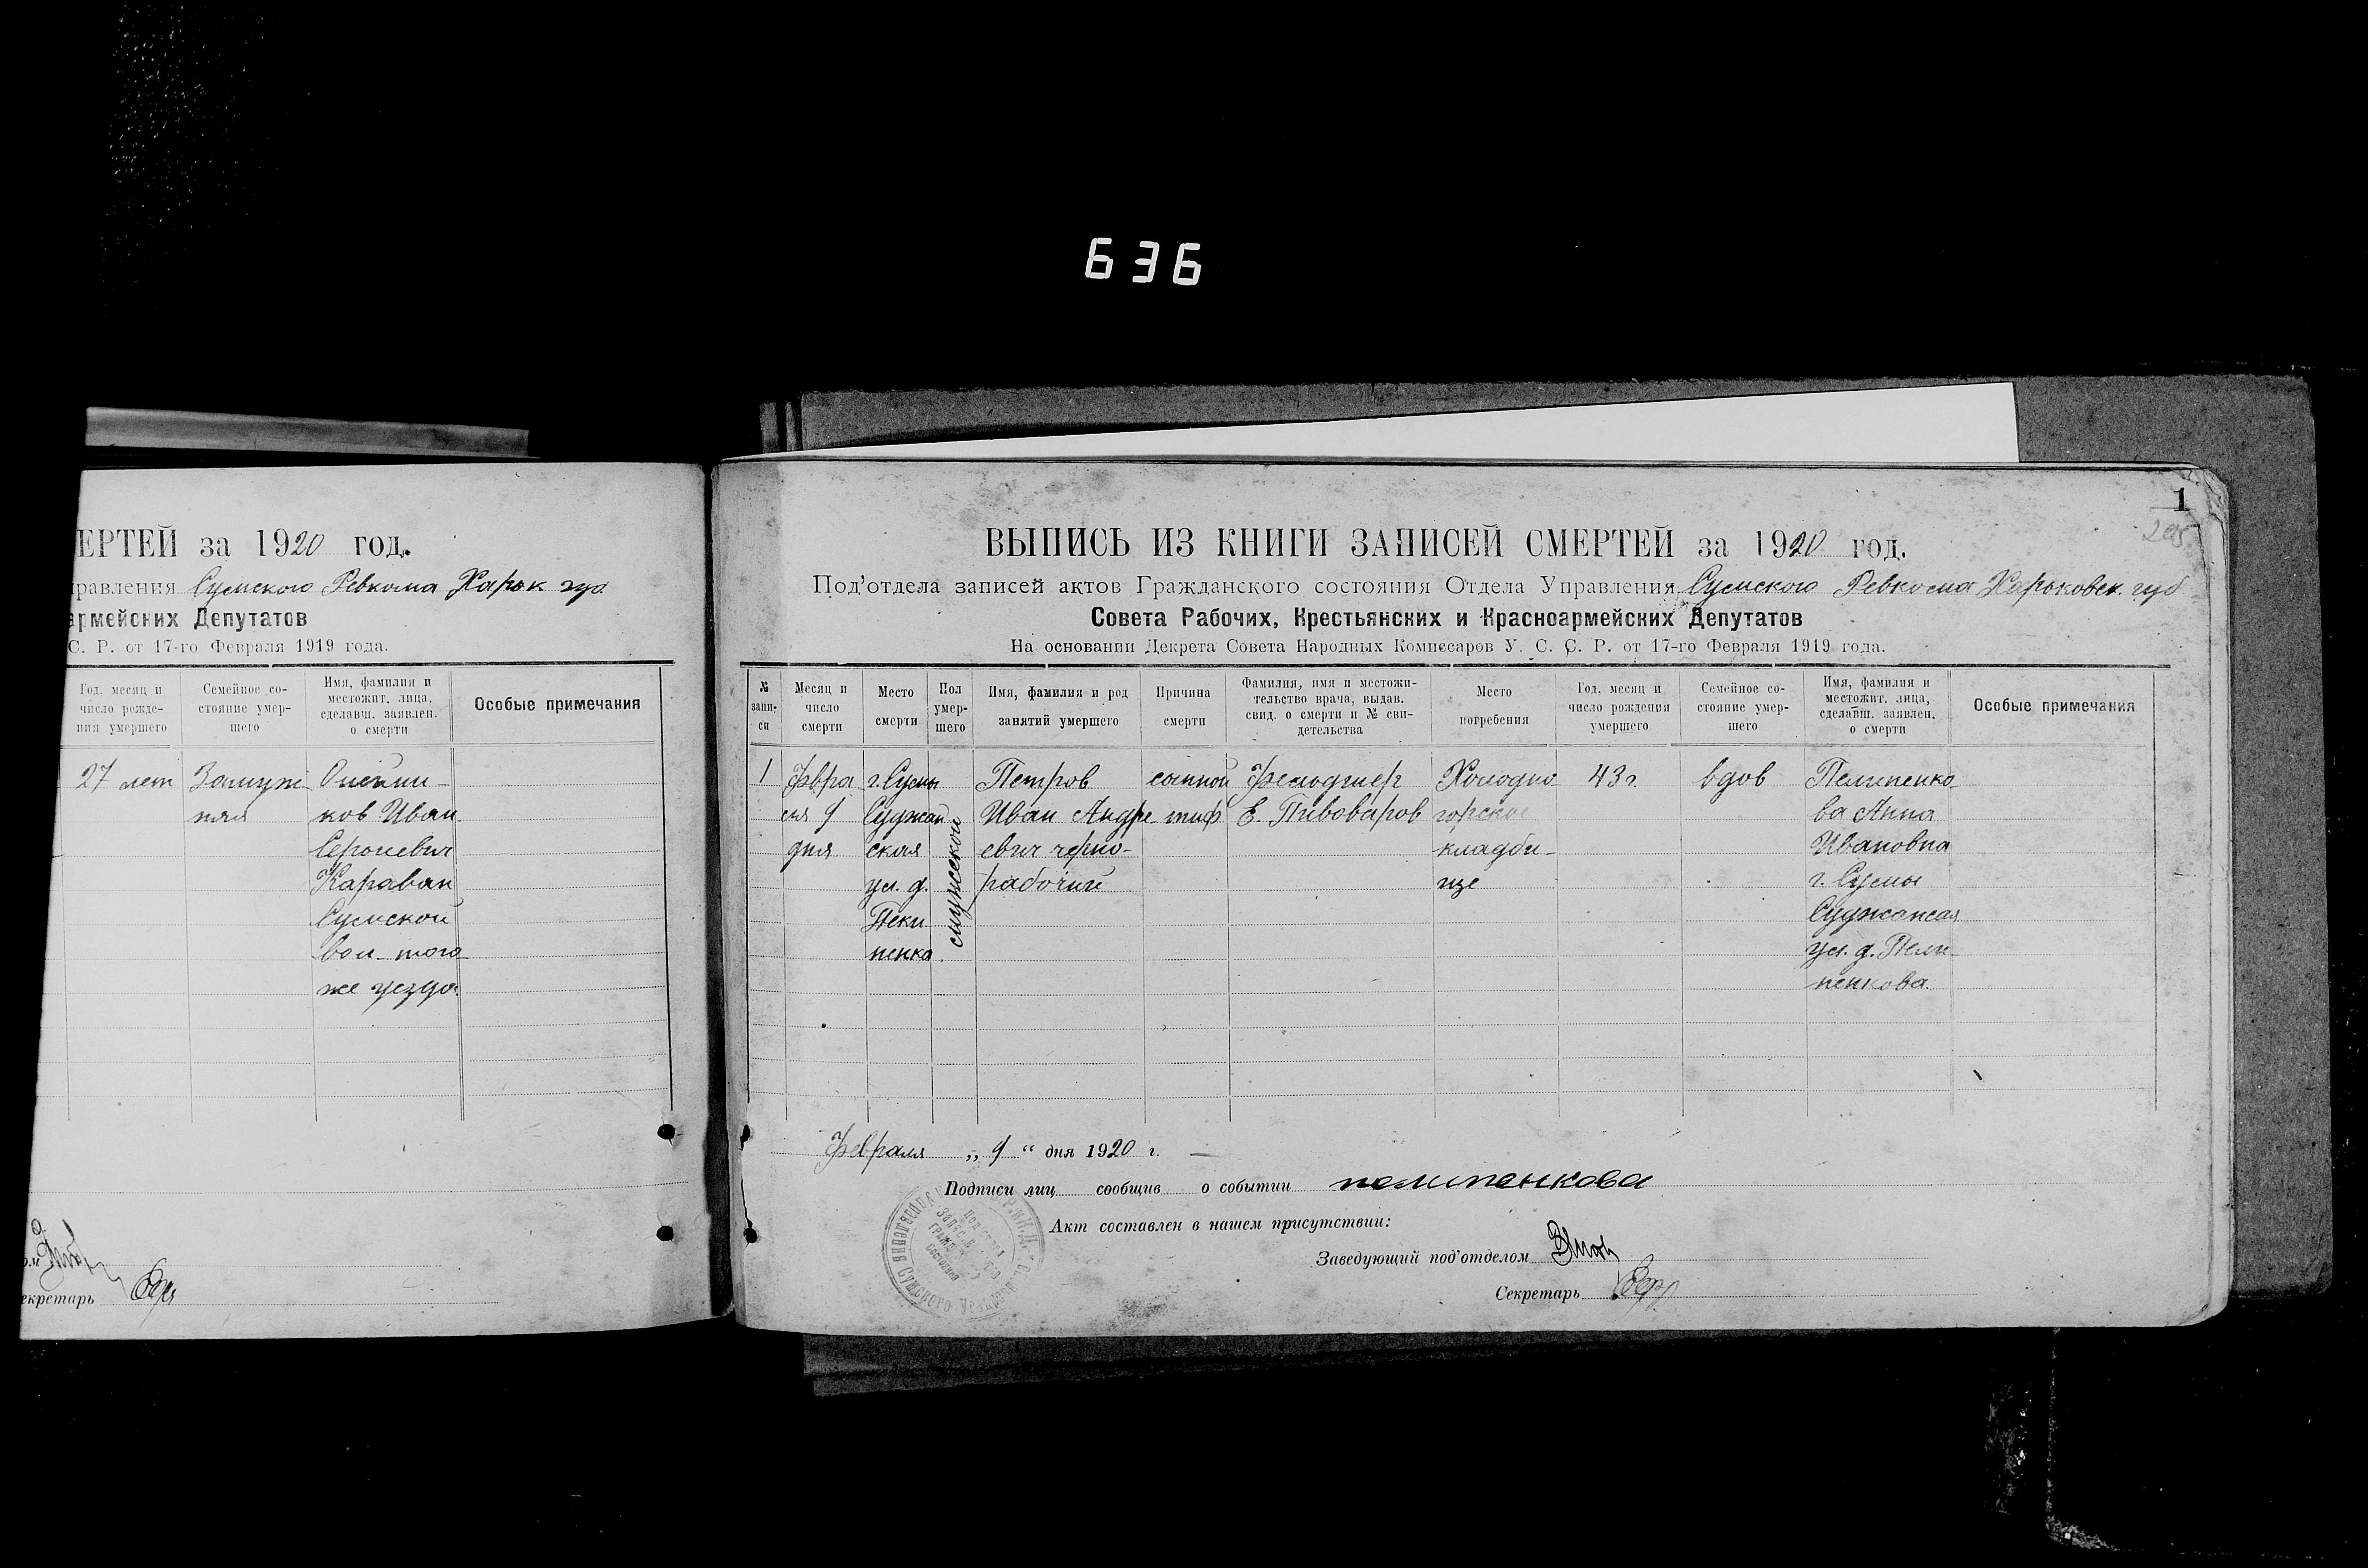 636
ЕРТЕЙ за 1920 год.
правления Сумского Ревкома Харьк губ
армейских Депутатов
С. Р. от 17-го Февраля 1919 года.
Год, месяц и число рожде- ния умершего
Семейное со- стояние умер- шего
Имя, фамилия и местожит. лица, сделавш. заявлен. о смерти
Особые примечания
27 лет Замуж
няя ков Иван
Караван
Сумской
вол. того
же уезда.
екретарь
1
205
ВЫПИСЬ ИЗ КНИГИ ЗАПИСЕЙ СМЕРТЕЙ за 1920 год.
Под'отдела записей актов Гражданского состояния Отдела Управления Сумского Ревкома Харьковск. губ
Совета Рабочих, Крестьянских и Красноармейских Депутатов
На основании Декрета Совета Народных Комиссаров У. С. С. Р. от 17-го Февраля 1919 года.
№ запи- си
Месяц и число смерти
Место смерти
Пол умер- шего
Имя, фамилия и род занятий умершего
Причина смерти
Фамилия, имя и местожи- тельство врача, выдав. свид. о смерти и № сви- детельства
Место погребения
Год, месяц и число рождения умершего
Семейное со- стояние умер- шего
Имя, фамилия и местожит. лица, сделавш. заявлен. о смерти
Особые примечания
1 Февра г. Сумы Петров сыпной Фельдшер Холодно 43 г. вдов Пелипенко
ля 9 Суджан Иван Андре тиф Е. Пивоваров горское ва Анна
дня ская евич черно- кладби- Ивановна
ул. д. рабочий ще г. Сумы
Суджанская
ненко ул. д. Пели-
пенкова
мужской
Февраля „ 9 “ дня 1920 г.
Подписи лиц сообщив о событии пелипенкова
Акт составлен в нашем присутствии:
Заведующий под'отделом
Секретарь